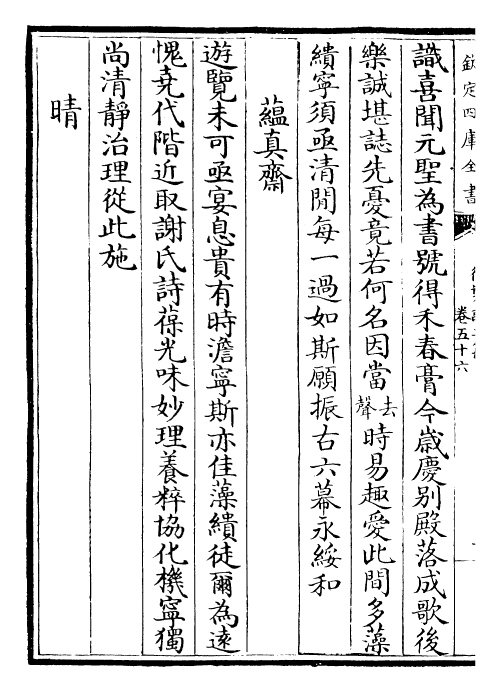 欽定四庫全書
卷五十六
識喜聞元聖為書號得禾春膏今歲慶别殿落成歌後
樂誠堪誌先憂竟若何名因當去聲時易趣愛此間多藻
繢寧須亟清閒每一過如斯願振古六幕永綏和
藴真齋
遊覽未可亟宴息貴有時澹寧斯亦佳藻繢徒爾為逺
愧堯代階近取謝氏詩葆光味妙理養粹協化機寧獨
尚清靜治理從此施
晴